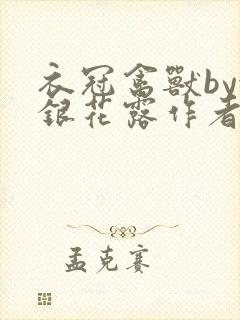 衣冠禽獸by
銀花露作者
孟克賽